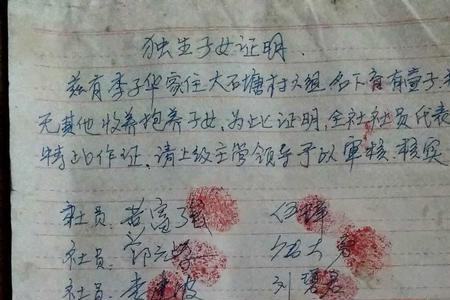 独生子女证明
兹有李子华家住大石塘村六组,名下育有壹子,
无其他收养抱养子女,为此证明,全社社员代表
特此作证,请上级主管领导予以审核.核实
社员:黄富强 伍祥
社员:郭元
社员:李建波 刘碧君